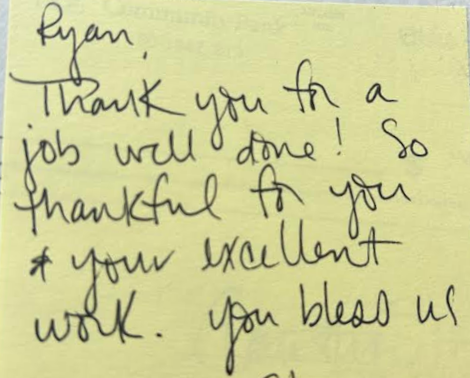 Ryan,
Thank you for a
job well done! So
thankful for you
& your excellent
work. You bless us